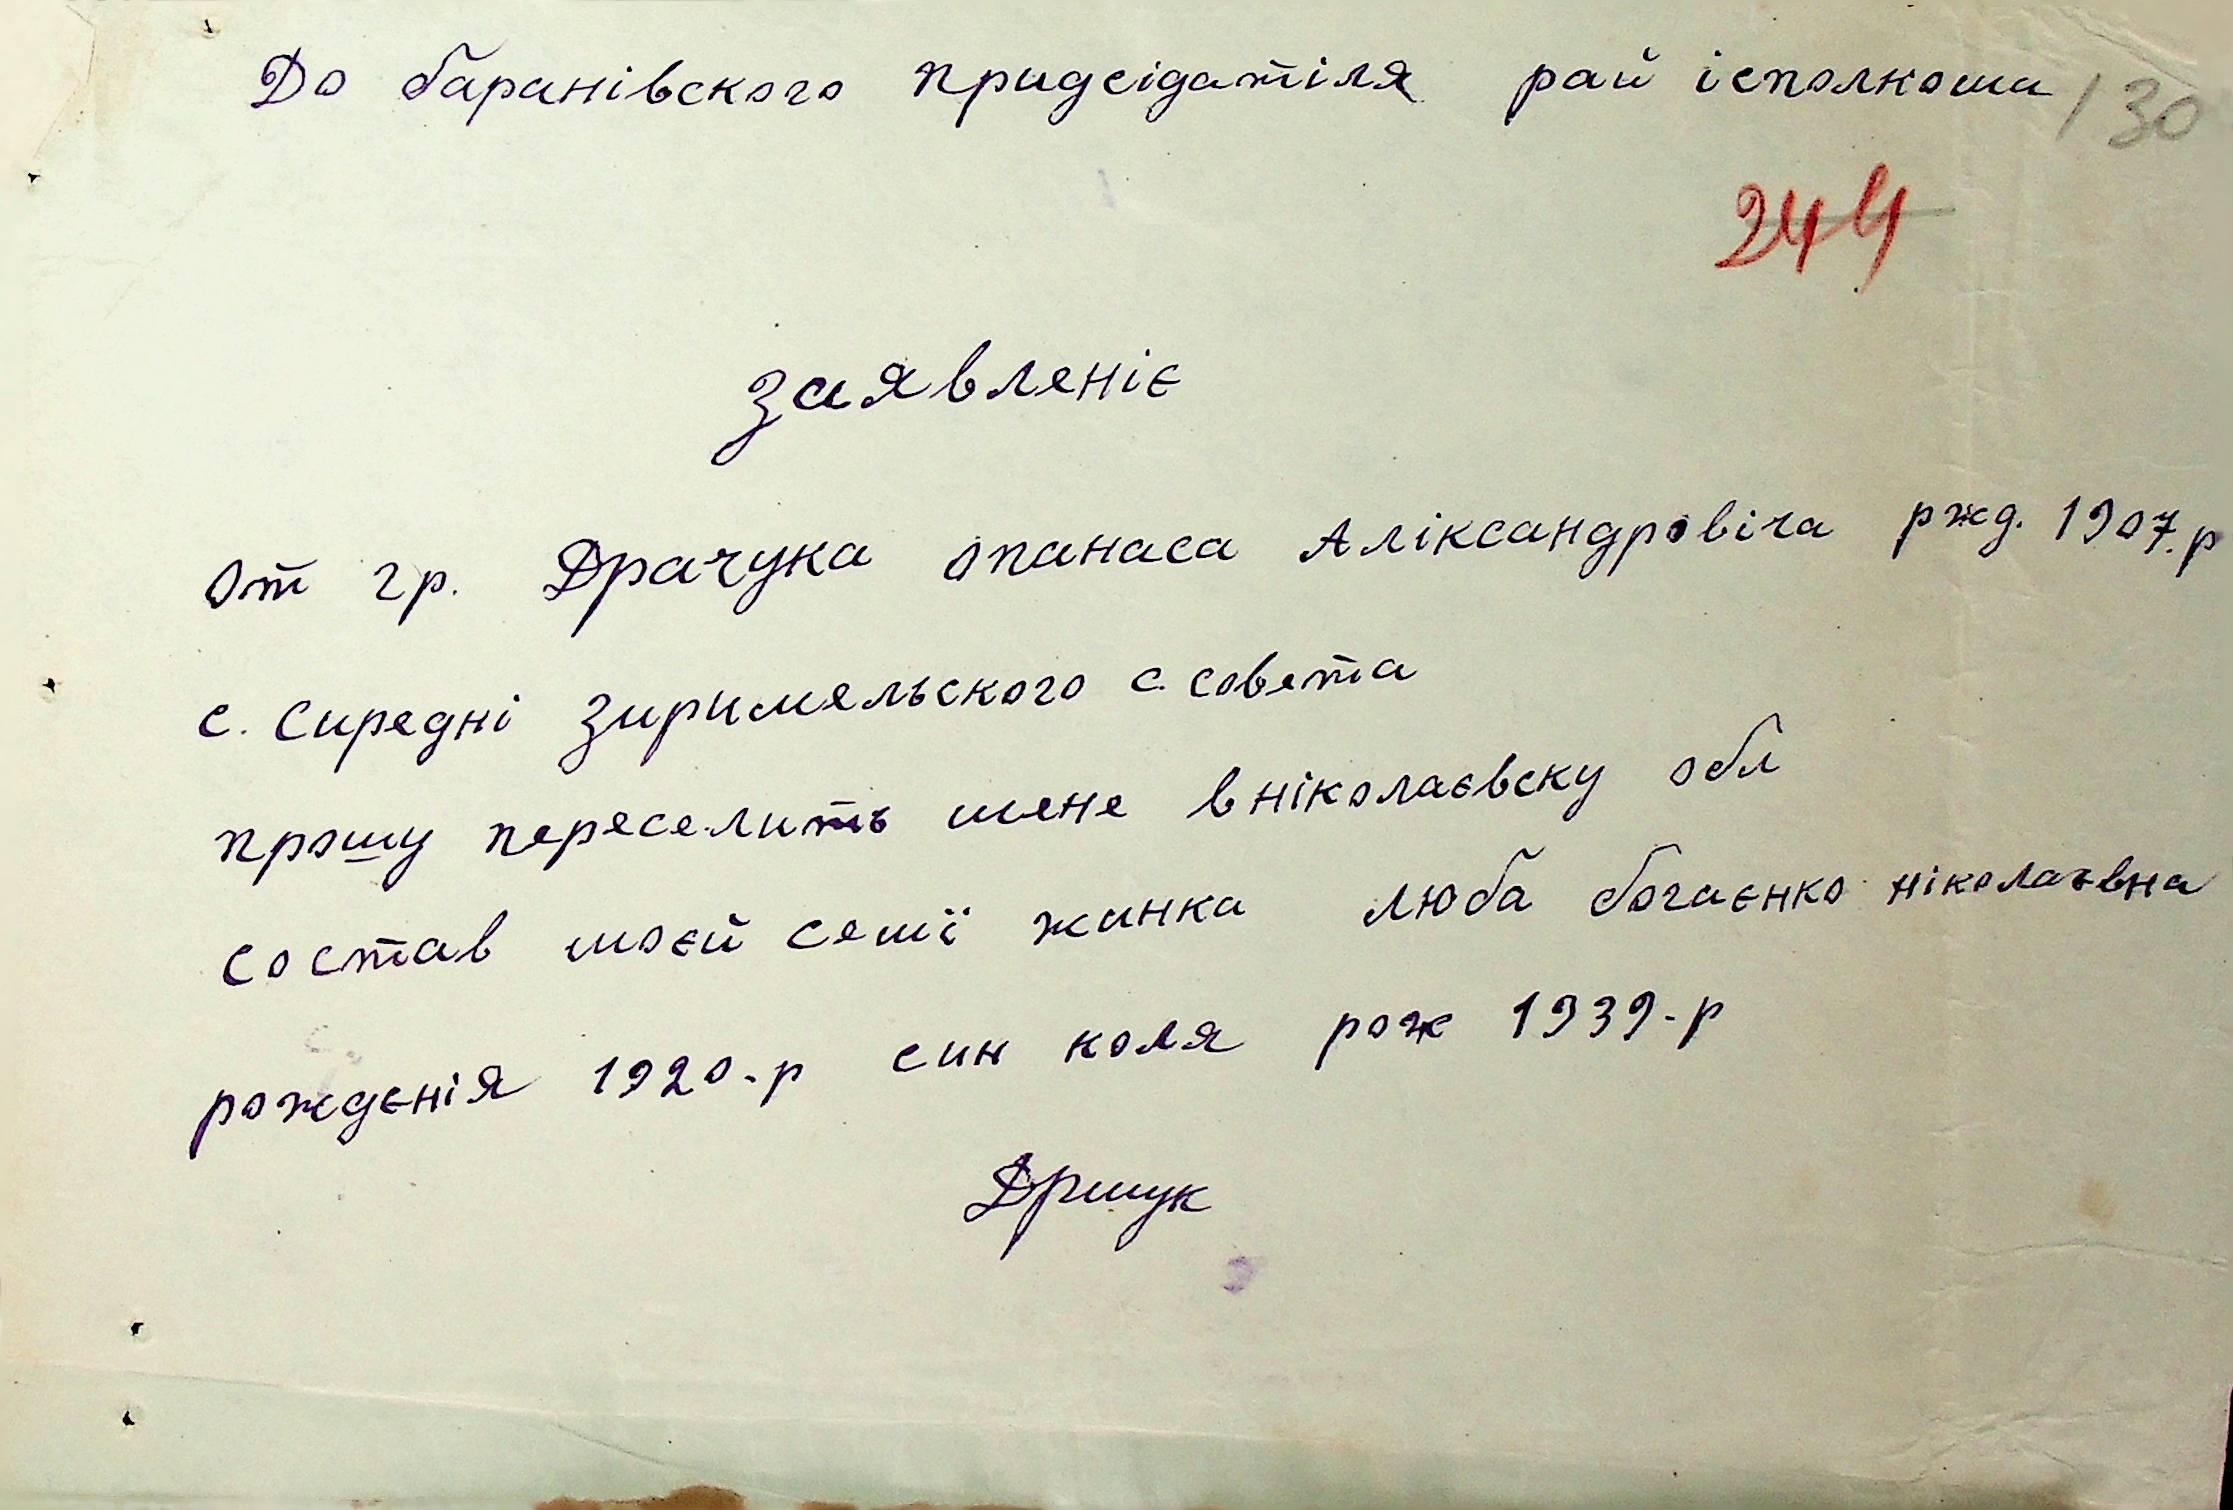 До баранівского придсідатіля рай ісполкома
130
244
заявленіє
от гр. Драчука опанаса Аліксандровіча ржд. 1907.р
с. Середні зиримельського с. совета
прошу переселить мене вніколаєвску обл
состав моєй семії жинка люба богаєнко ніколаєвна
рожденія 1920-р син коля рож 1939-р